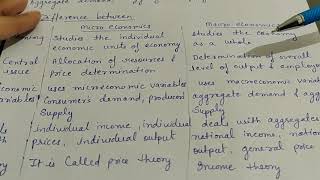 Difference between
micro economics
macro economics
Studies the individual economic units of economy
studies the economy as a whole
Central issue
Allocation of resources & price determination
Determination of overall level of output & employment
uses microeconomic variables
Consumer's demand, producer's Supply
uses macroeconomic variables
aggregate demand & aggregate Supply
individual income, individual prices, individual output
deals with aggregates
national income, general price
output,
It is called price theory
Income theory